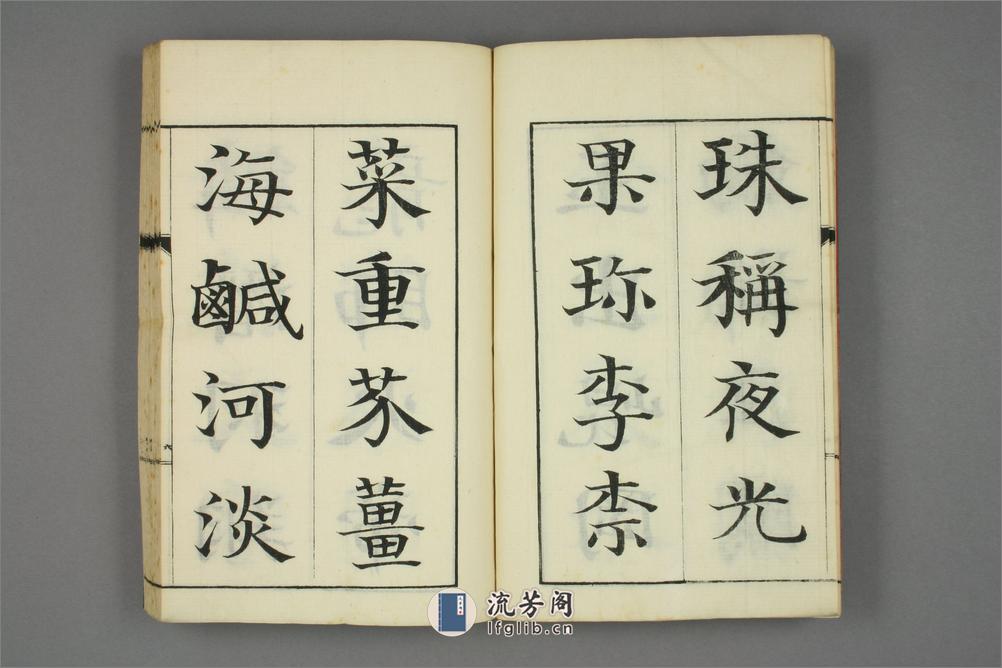 珠稱夜光
果珎李柰
菜重芥薑
海鹹河淡
六
流芳阁
lfglib.cn